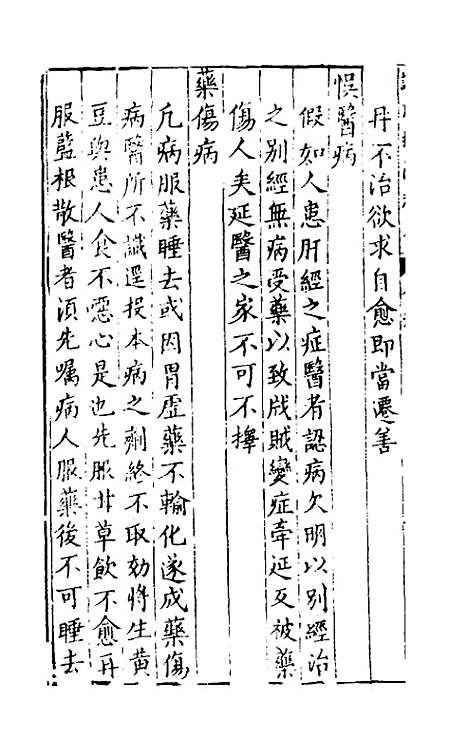 丹不治欲求自愈即當遷善
悞醫病
假如人患肝經之症醫者認病欠明以別經治
之別經無病受藥以致戕賊變症牽延又被藥
傷人矣延醫之家不可不擇
藥傷病
凢病服藥睡去或因胃虛藥不輸化遂成藥傷
病醫所不識還投本病之劑終不取効將生黄
豆與患人食不惡心是也先服甘草飲不愈再
服藍根散醫者湏先囑病人服藥後不可睡去